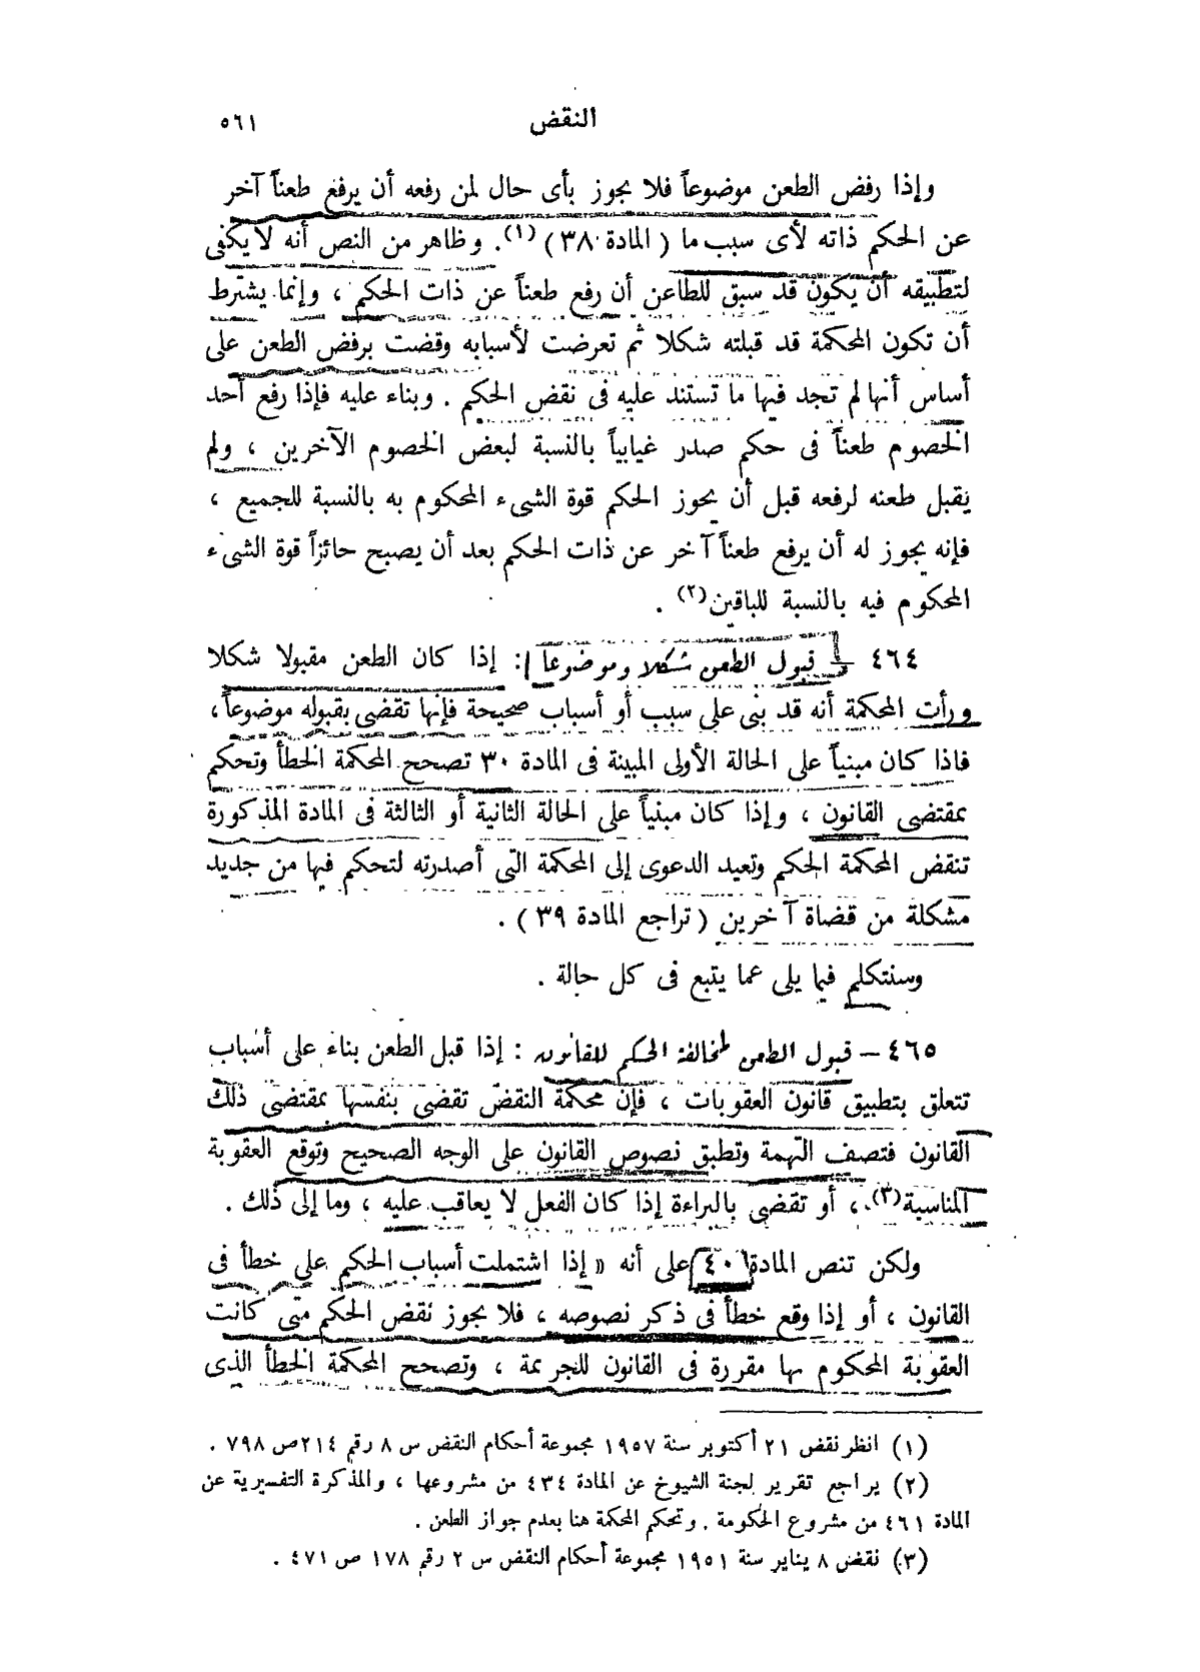 النقض
٥٦١
وإذا رفض الطعن موضوعاً فلا يجوز بأى حال لمن رفعه أن يرفع طعناً آخر
عن الحكم ذاته لأى سبب ما ( المادة ٣٨ ) (١). وظاهر من النص أنه لا يكفى
لتطبيقه أن يكون قد سبق للطاعن أن رفع طعناً عن ذات الحكم ، وإنما يشترط
أن تكون المحكمة قد قبلته شكلا ثم تعرضت لأسبابه وقضت برفض الطعن على
أساس أنها لم تجد فيها ما تستند عليه فى نقض الحكم . وبناء عليه فإذا رفع أحد
الخصوم طعناً فى حكم صدر غيابياً بالنسبة لبعض الخصوم الآخرين ، ولم
يقبل طعنه لرفعه قبل أن يحوز الحكم قوة الشىء المحكوم به بالنسبة للجميع ،
فإنه يجوز له أن يرفع طعناً آخر عن ذات الحكم بعد أن يصبح حائزاً قوة الشىء
المحكوم فيه بالنسبة للباقين(٢) .
٤٦٤ – قبول الطعن شكلا وموضوعاً : إذا كان الطعن مقبولا شكلا
ورأت المحكمة أنه قد بنى على سبب أو أسباب صحيحة فإنها تقضى بقبوله موضوعاً،
فاذا كان مبنياً على الحالة الأولى المبينة فى المادة ٣٠ تصحح المحكمة الخطأ وتحكم
بمقتضى القانون ، وإذا كان مبنياً على الحالة الثانية أو الثالثة فى المادة المذكورة
تنقض المحكمة الحكم وتعيد الدعوى إلى المحكمة التى أصدرته لتحكم فيها من جديد
مشكلة من قضاة آخرين ( تراجع المادة ٣٩ ) .
وسنتكلم فيما يلى عما يتبع فى كل حالة .
٤٦٥ – قبول الطعن لمخالفة الحكم للقانون : إذا قبل الطعن بناء على أسباب
تتعلق بتطبيق قانون العقوبات ، فإن محكمة النقض تقضى بنفسها بمقتضى ذلك
القانون فتصف التهمة وتطبق نصوص القانون على الوجه الصحيح وتوقع العقوبة
المناسبة(٣) ، أو تقضى بالبراءة إذا كان الفعل لا يعاقب عليه ، وما إلى ذلك .
ولكن تنص المادة ٤٠ على أنه « إذا اشتملت أسباب الحكم على خطأ فى
القانون ، أو إذا وقع خطأ فى ذكر نصوصه ، فلا يجوز نقض الحكم متى كانت
العقوبة المحكوم بها مقررة فى القانون للجريمة ، وتصحح المحكمة الخطأ الذى
(١) انظر نقض ٢١ أكتوبر سنة ١٩٥٧ مجموعة أحكام النقض س ٨ رقم ٢١٤ ص ٧٩٨ .
(٢) يراجع تقرير لجنة الشيوخ عن المادة ٤٣٤ من مشروعها ، والمذكرة التفسيرية عن
المادة ٤٦١ من مشروع الحكومة . وتحكم المحكمة هنا بعدم جواز الطعن .
(٣) نقض ٨ يناير سنة ١٩٥١ مجموعة أحكام النقض س ٢ رقم ١٧٨ ص ٤٧١ .